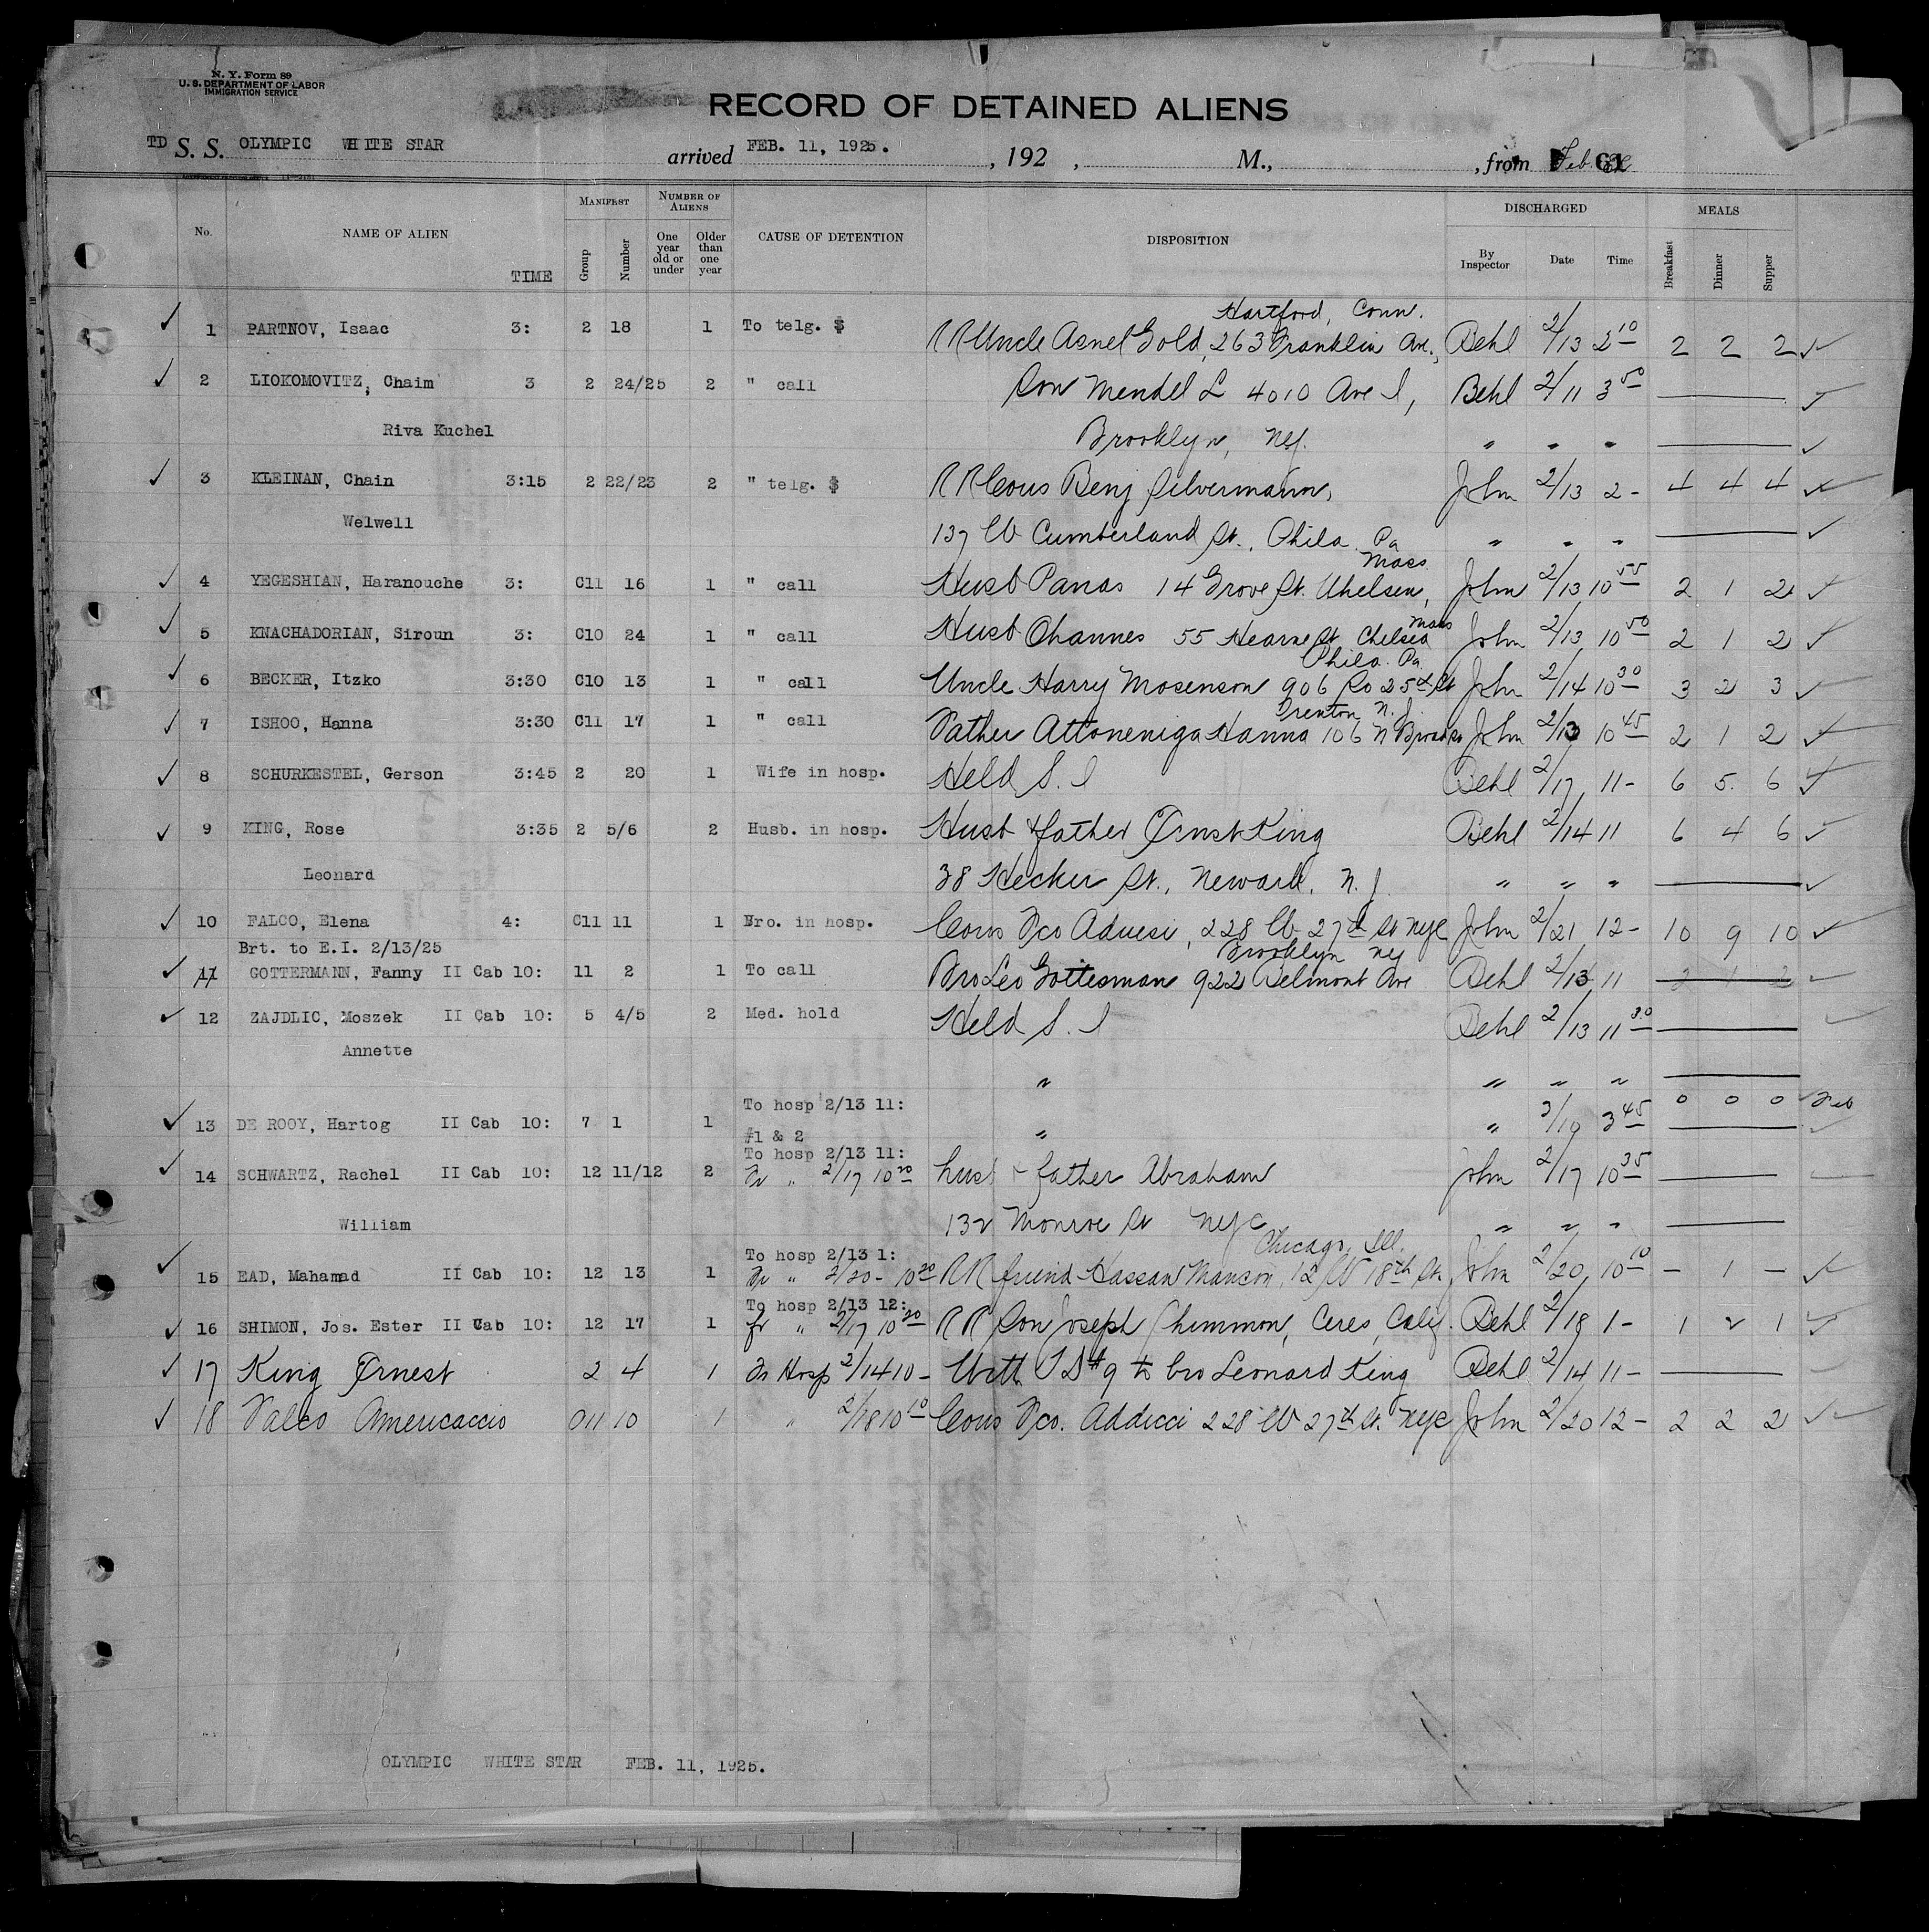 N. Y. Form 89
U. S. DEPARTMENT OF LABOR
IMMIGRATION SERVICE
RECORD OF DETAINED ALIENS
TD S. S. OLYMPIC WHITE STAR arrived FEB. 11, 1925. , 192 , M., , from Feb.
No. NAME OF ALIEN TIME MANIFEST Group Number NUMBER OF ALIENS One year old or under Older than one year CAUSE OF DETENTION DISPOSITION DISCHARGED By Inspector Date Time MEALS Breakfast Dinner Supper
Hartford, Conn.
1 PARTNOV, Isaac 3: 2 18 1 To telg. $ RR Uncle Asnel Gold, 263 Franklin Ave., Behl 2/13 2 10 2 2 2
2 LIOKOMOVITZ, Chaim 3 2 24/25 2 " call Son Mendel L 4010 Ave I, Behl 2/11 3 50
Riva Kuchel Brooklyn, NY. " " "
3 KLEINAN, Chain 3:15 2 22/23 2 " telg. $ RR Cous Benj Silvermann, John 2/13 2 - 4 4 4
Welwell 137 W Cumberland St., Phila. Pa " " "
Mass
4 YEGESHIAN, Haranouche 3: C11 16 1 " call Husb Panos 14 Grove St. Chelsea, John 2/13 10 55 2 1 2
Mass
5 KNACHADORIAN, Siroun 3: C10 24 1 " call Husb Ohannes 55 Hearne St Chelsea John 2/13 10 50 2 1 2
Phila. Pa
6 BECKER, Itzko 3:30 C10 13 1 " call Uncle Harry Mosenson 906 So 25th St John 2/14 10 30 3 2 3
Trenton N. J.
7 ISHOO, Hanna 3:30 C11 17 1 " call Father Attoneniga Hanna 106 N Broad St John 2/13 10 45 2 1 2
8 SCHURKESTEL, Gerson 3:45 2 20 1 Wife in hosp. Held S. I Behl 2/17 11 - 6 5 6
9 KING, Rose 3:35 2 5/6 2 Husb. in hosp. Husb & father Ernst King Behl 2/14 11 6 4 6
Leonard 38 Hecker St., Newark, N. J. " " "
10 FALCO, Elena 4: C11 11 1 Bro. in hosp. Cous Fco Aduesi, 228 W. 27th St NYC John 2/21 12 - 10 9 10
Brt. to E.I. 2/13/25 Brooklyn NY
11 GOTTERMANN, Fanny II Cab 10: 11 2 1 To call Bro Leo Gottesman 922 Belmont Ave Behl 2/13 11 2 1 2
12 ZAJDLIC, Moszek II Cab 10: 5 4/5 2 Med. hold Held S. I Behl 2/13 11 30
Annette
" " " "
To hosp 2/13 11: 0 0 0
13 DE ROOY, Hartog II Cab 10: 7 1 1 #1 & 2 " " 2/19 3 45
To hosp 2/13 11:
14 SCHWARTZ, Rachel II Cab 10: 12 11/12 2 Fr " 2/17 10 20 husb & father Abraham John 2/17 10 35
William 132 Monroe St NYC " " "
To hosp 2/13 1: Chicago, Ill.
15 EAD, Mahamad II Cab 10: 12 13 1 Fr " 2/20 - 10 20 RR friend Hassan Mancon, 12 W 18th St. John 2/20 10 10 - 1 -
To hosp 2/13 12:
16 SHIMON, Jos. Ester II Cab 10: 12 17 1 fr " 2/17 10 20 RR Son Joseph Shimmon, Ceres, Calif. Behl 2/18 1 - 1 2 1
17 King Ernest 2 4 1 Fr Hosp 2/14 10 - With TD #9 to bro Leonard King Behl 2/14 11 -
18 Falco Americaccio C11 10 1 " 2/18 10 10 Cous Fco. Adducci 228 W 27th St. NYC John 2/20 12 - 2 2 2
OLYMPIC WHITE STAR FEB. 11, 1925.